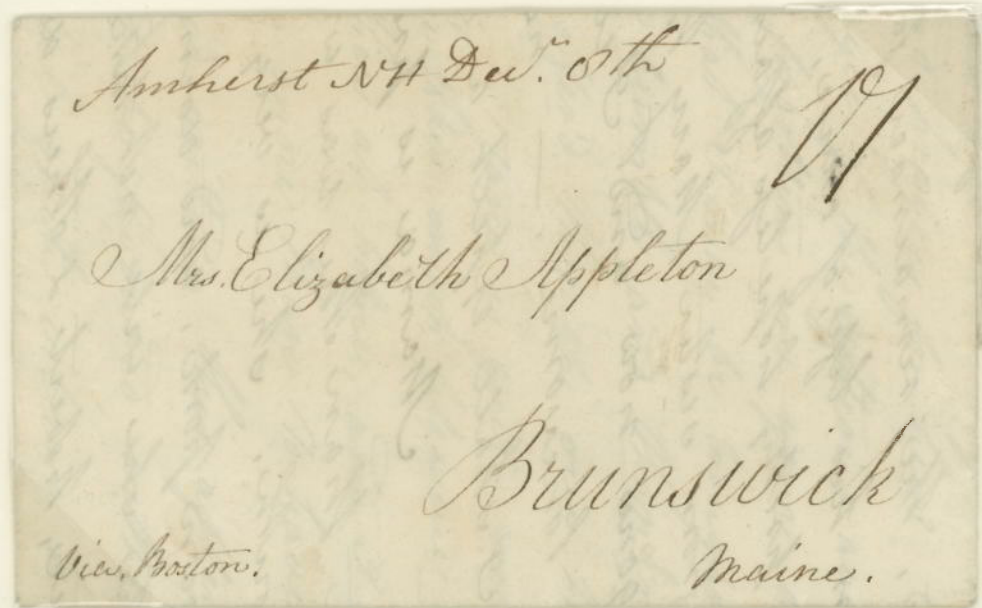 Amherst NH Decr. 8th
Mrs. Elizabeth Appleton
Brunswick
Maine.
Via, Boston.